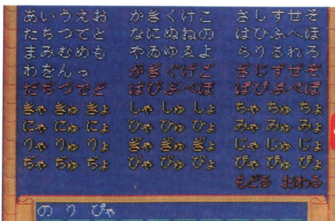 あいうえお かきくけこ さしすせそ
たちつてと なにぬねの はひふへほ
まみむめも やみゆゑよ らりるれろ
わをんっ がぎぐげご ざじずぜぞ
だぢづでど ばびぶべぼ ぱぴぷぺぽ
きゃ きゅ きょ しゃ しゅ しょ ちゃ ちゅ ちょ
にゃ にゅ にょ ひゃ ひゅ ひょ みゃ みゅ みょ
りゃ りゅ りょ ぎゃ ぎゅ ぎょ じゃ じゅ じょ
ぢゃ ぢゅ ぢょ びゃ びゅ びょ ぴゃ ぴゅ ぴょ
もどる おわる
の り ぴゃ